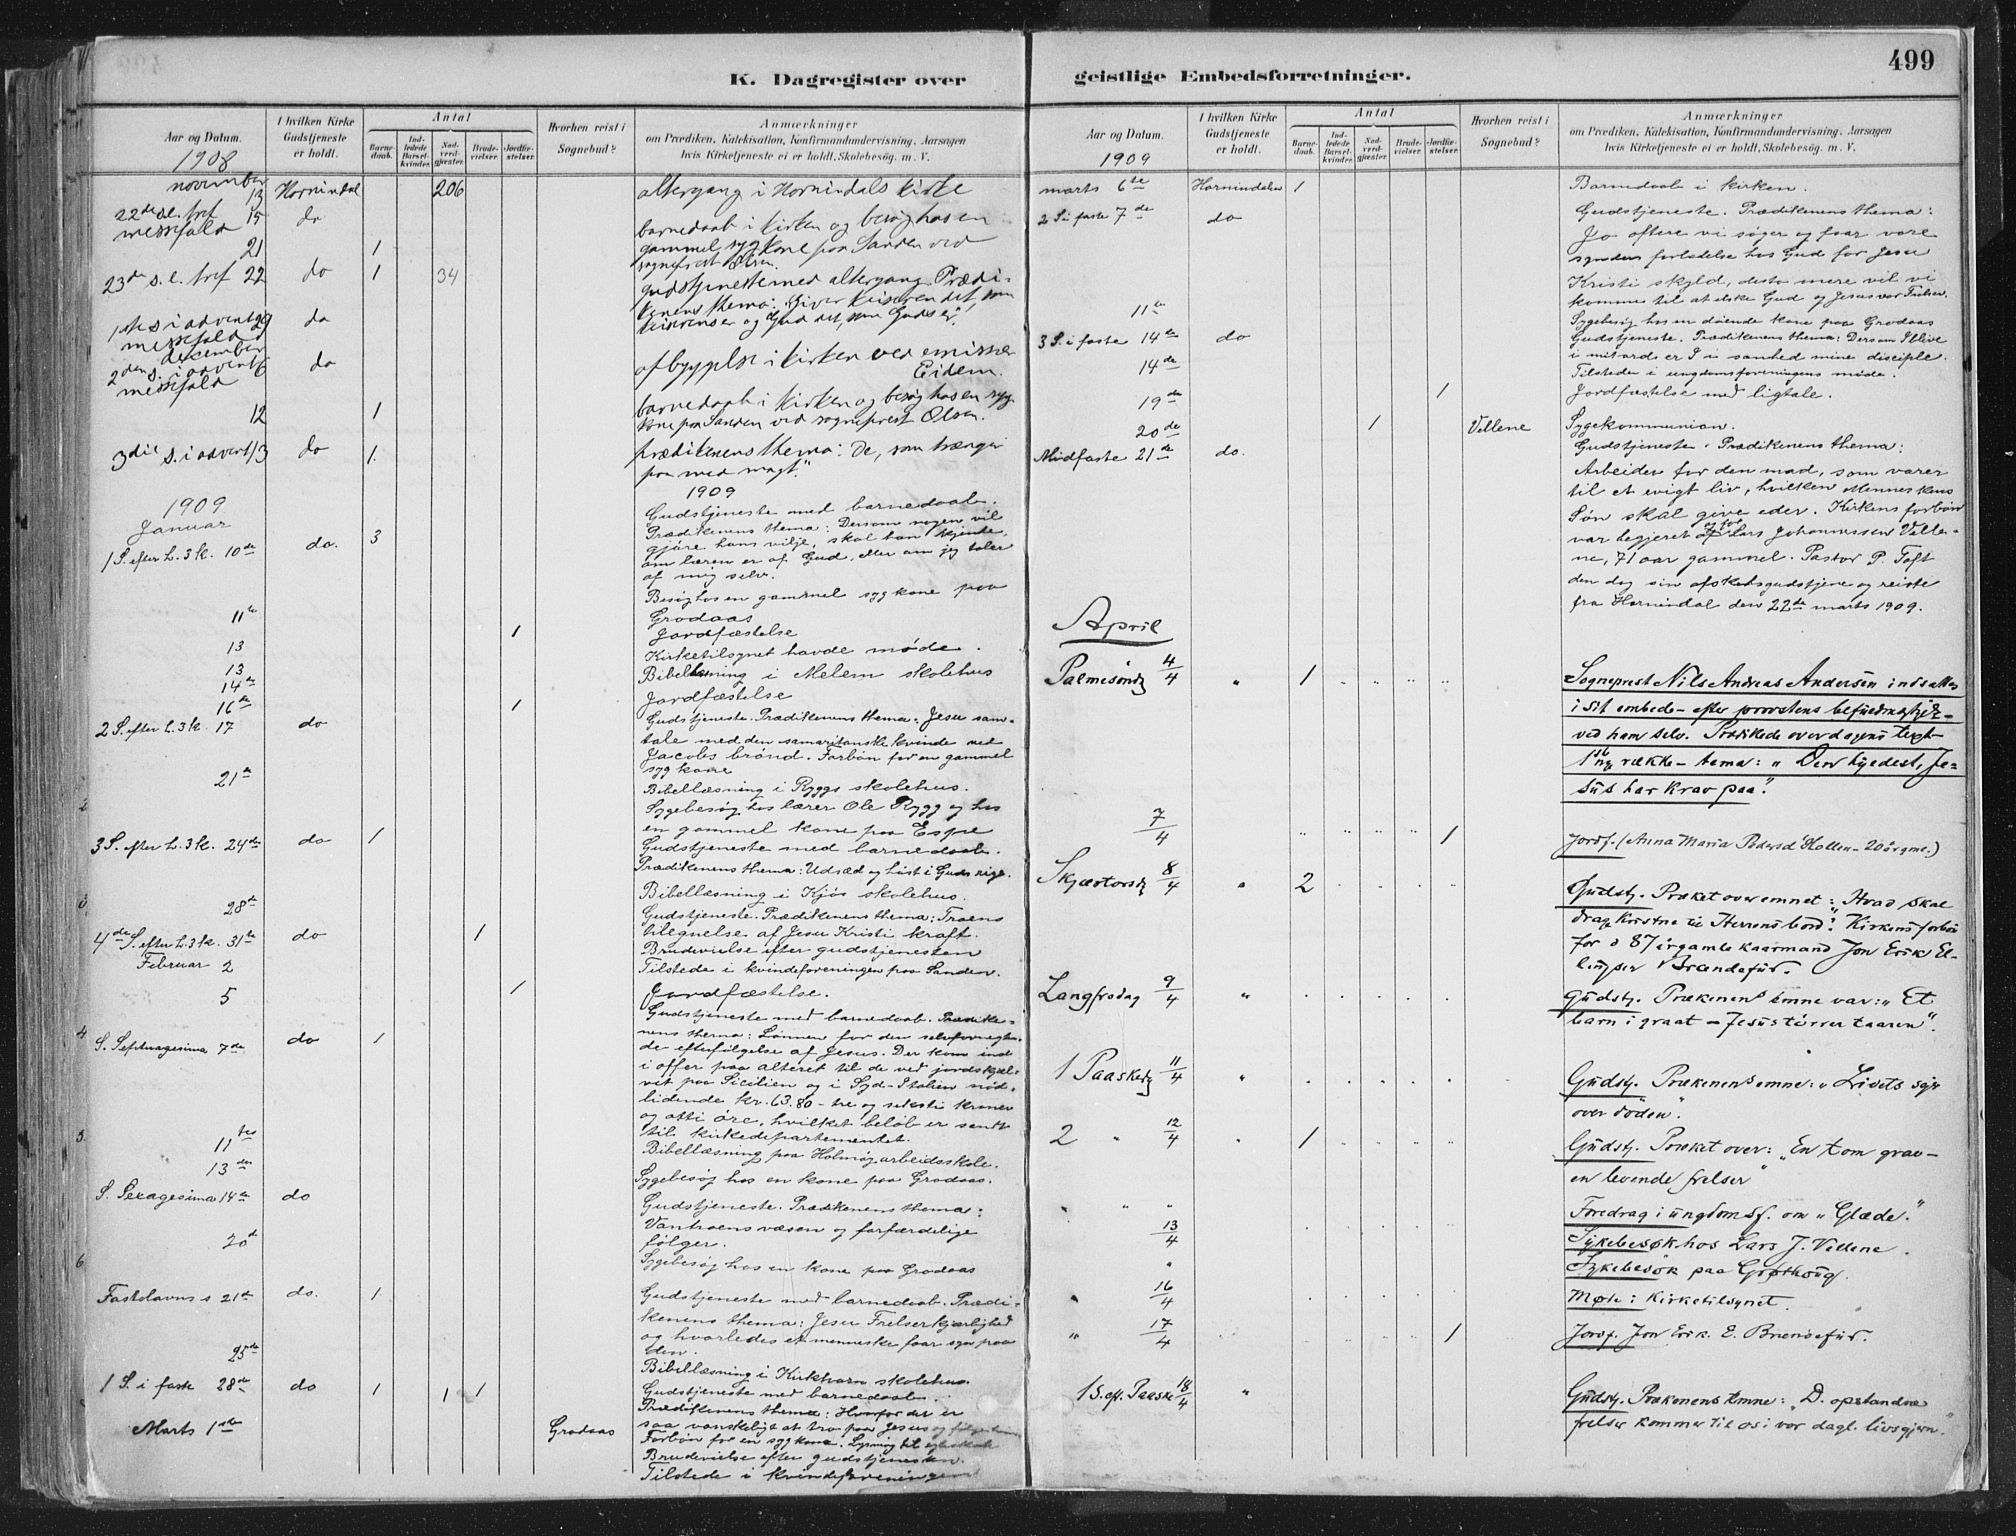 499
K. Dagregister over
geistlige Embedsforretninger.
Aar og Datum.
I hvilken Kirke Gudstjeneste er holdt.
Antal
Barne-daab.
Ind-ledede Barsel-kvinder.
Nad-verd-gjester.
Brude-vielser.
Jordfæ-stelser.
Hvorhen reist i Sognebud?
Anmærkninger
om Prædiken, Katekisation, Konfirmandundervisning, Aarsagen
hvis Kirketjeneste ei er holdt, Skolebesøg. m. V.
1908
november
13 Hornindal 206 altergang i Hornindals kirke
22de s. e. tref 15 do
messefald
barnedaab i kirken og besøg hos en
21 1 gammel syg kone paa Sanden ved
sogneprest Olsen.
23de s. e. tref 22 do 1 34 gudstjeneste med altergang. Prædi-
kenens thema: Giver keiseren det, som
keiserens er og Gud det, som Guds er.
1ste s i advent 29 do
messefald
december
2den s. i advent 6 do opbyggelse i kirken ved emissær
messefald Eidem.
12 1 barnedaab i kirken og besøg hos en syg
kone paa Sanden ved sogneprest Olsen.
3die s. i advent 13 do 1. prædikenens thema: De, som trænger
paa med magt."
1909 1909
Januar Gudstjeneste med barnedaab.
1 S. efter h. 3 k. 10de do. 3 Prædikenens thema: Dersom nogen vil
gjøre hans vilje, skal han kjende,
om læren er af Gud, eller om jeg taler
af mig selv.
Besøg hos en gammel syg kone paa
11te Grodaas
13 1 Jordfæstelse
13 Kirketilsynet havde møde.
14de Bibellæsning i Melem skolehus
16de 1 Jordfæstelse
2 S. efter h. 3 k. 17 do Gudstjeneste. Prædikenens thema: Jesu sam-
tale med den samaritanske kvinde ved
Jacobs brønd. Forbøn for en gammel
syg kone
21de Bibellæsning i Ryggs skolehus.
Sygebesøg hos lærer Ole Rygg og hos
en gammel kone paa Espe
3 S. efter h. 3 k. 24de do 1 Gudstjeneste med barnedaab.
Prædikenens thema: Udsæd og høst i Guds rige.
28de Bibellæsning i Kjøs skolehus.
4de S. efter h. 3 k. 31te do 1 Gudstjeneste. Prædikenens thema: Troens
tilegnelse af Jesu Kristi kraft.
Brudevielse efter gudstjenesten
Februar 2 Tilstede i kvindeforeningen paa Sanden.
5 1 Jordfæstelse.
S. Septuagesima 7de do 1 Gudstjeneste med barnedaab. Prædike-
nens thema: Lønnen for den selvfornegten-
de efterfølgelse af Jesus. Der kom ind
i offer paa alteret til de ved jordskjæl-
vet paa Sicilien og i Syd-Italien nød-
lidende kr. 63.80 - tre og seksti kroner
og otti øre, hvilket beløb er sendt
til kirkedepartementet.
11te Bibellæsning paa Holmøj arbeidsskole.
13de Sygebesøg hos en kone paa Grodaas.
S. Sexagesima 14de do Gudstjeneste. Prædikenens thema:
Vantroens væsen og forfærdelige
følger.
20de Sygebesøg hos en kone paa Grodaas
Fastelavns s 21de do. 1 Gudstjeneste med barnedaab. Prædi-
kenens thema: Jesu Frelserkjærlighed
og hvorledes et menneske faar syn paa
den.
25de Bibellæsning i Kirkhorn skolehus.
1 S. i faste 28de do 1 1 1 Gudstjeneste med barnedaab.
Prædikenens thema: Hvorfor det er
saa vanskeligt at tro paa Jesus og
Forbøn for en syg kone.
Brudevielse efter gudstjenesten.
Marts 1ste Grodaas Tilstede i kvindeforeningen
Aar og Datum.
I hvilken Kirke Gudstjeneste er holdt.
Antal
Barne-daab.
Ind-ledede Barsel-kvinder.
Nad-verd-gjester.
Brude-vielser.
Jordfæ-stelser.
Hvorhen reist i Sognebud?
Anmærkninger
om Prædiken, Katekisation, Konfirmandundervisning, Aarsagen
hvis Kirketjeneste ei er holdt, Skolebesøg. m. V.
1909
marts 6te Hornindalen 1 Barnedaab i kirken.
2 S. i faste 7de do Gudstjeneste. Prædikenens thema:
Jo oftere vi søger og faar vore
synders forladelse hos Gud for Jesu
Kristi skyld, desto mere vil vi
komme til at elske Gud og Jesus vor Frelser.
11te Sygebesøg hos en døende kone paa Grodaas
3 S. i faste 14de do Gudstjeneste. Prædikenens thema: Dersom I blive
i mit ord, er I i sandhed mine disciple.
14de Tilstede i ungdomsforeningens møde.
19de 1 Jordfæstelse med ligtale.
20de 1 Vellene Sygekommunion.
Midfaste 21de do. Gudstjeneste. Prædikenens thema:
Arbeider for den mad, som varer
til et evigt liv, hvilken Menneskens
Søn skal give eder. Kirkens forbøn
var begjeret af og for Lars Johannessen Velle-
ne, 71 aar gammel. Pastor P. Toft
den dag sin afskedsgudstjene og reiste
fra Hornindal den 22de marts 1909.
April
Palmesøndg 4/4 " 1 Sogneprest Nils Andreas Andersen indsattes
i sit embede - efter provstens
ved ham selv. Prædikede over dagens text
1ste ny række - tema: "Den hyldest, Je-
sus har krav paa".
7/4 1 Jordf. (Anna Maria Pedersd Hollen - 20 år gml.)
Skjærtorsdg 8/4 " 2 Gudstj. Præket over emnet: "Hvad skal
drage kristne til Herrens bord". Kirkens forbøn
for d 87 årgamle kaarmand Jon Erik El-
lingsen Brændefur.
Langfredag 9/4 " Gudstj. Prækenens emne var: "Et
barn i graat - Jesus tørrer taaren".
1 Paaskedg 11/4 " Gudstj. Prækenens emne: "Livets sejr
over døden".
2 " 12/4 " 1 Gudstj. Præket over: "En tom grav -
en levende frelser"
" " " Foredrag i ungdomsf. om "Glæde."
13/4 Sykebesøk hos Lars J. Vellene.
" Sykebesøk paa Grøthoug.
" 16/4 Møte i kirketilsynet.
" 17/4 1 Jordf. Jon Erik. E. Brændefur.
1 S. eft. Paaske 18/4 " Gudstj. Prækenens emne: "D. opstandne
frelser kommer til os i vor dagl. livsgjern."